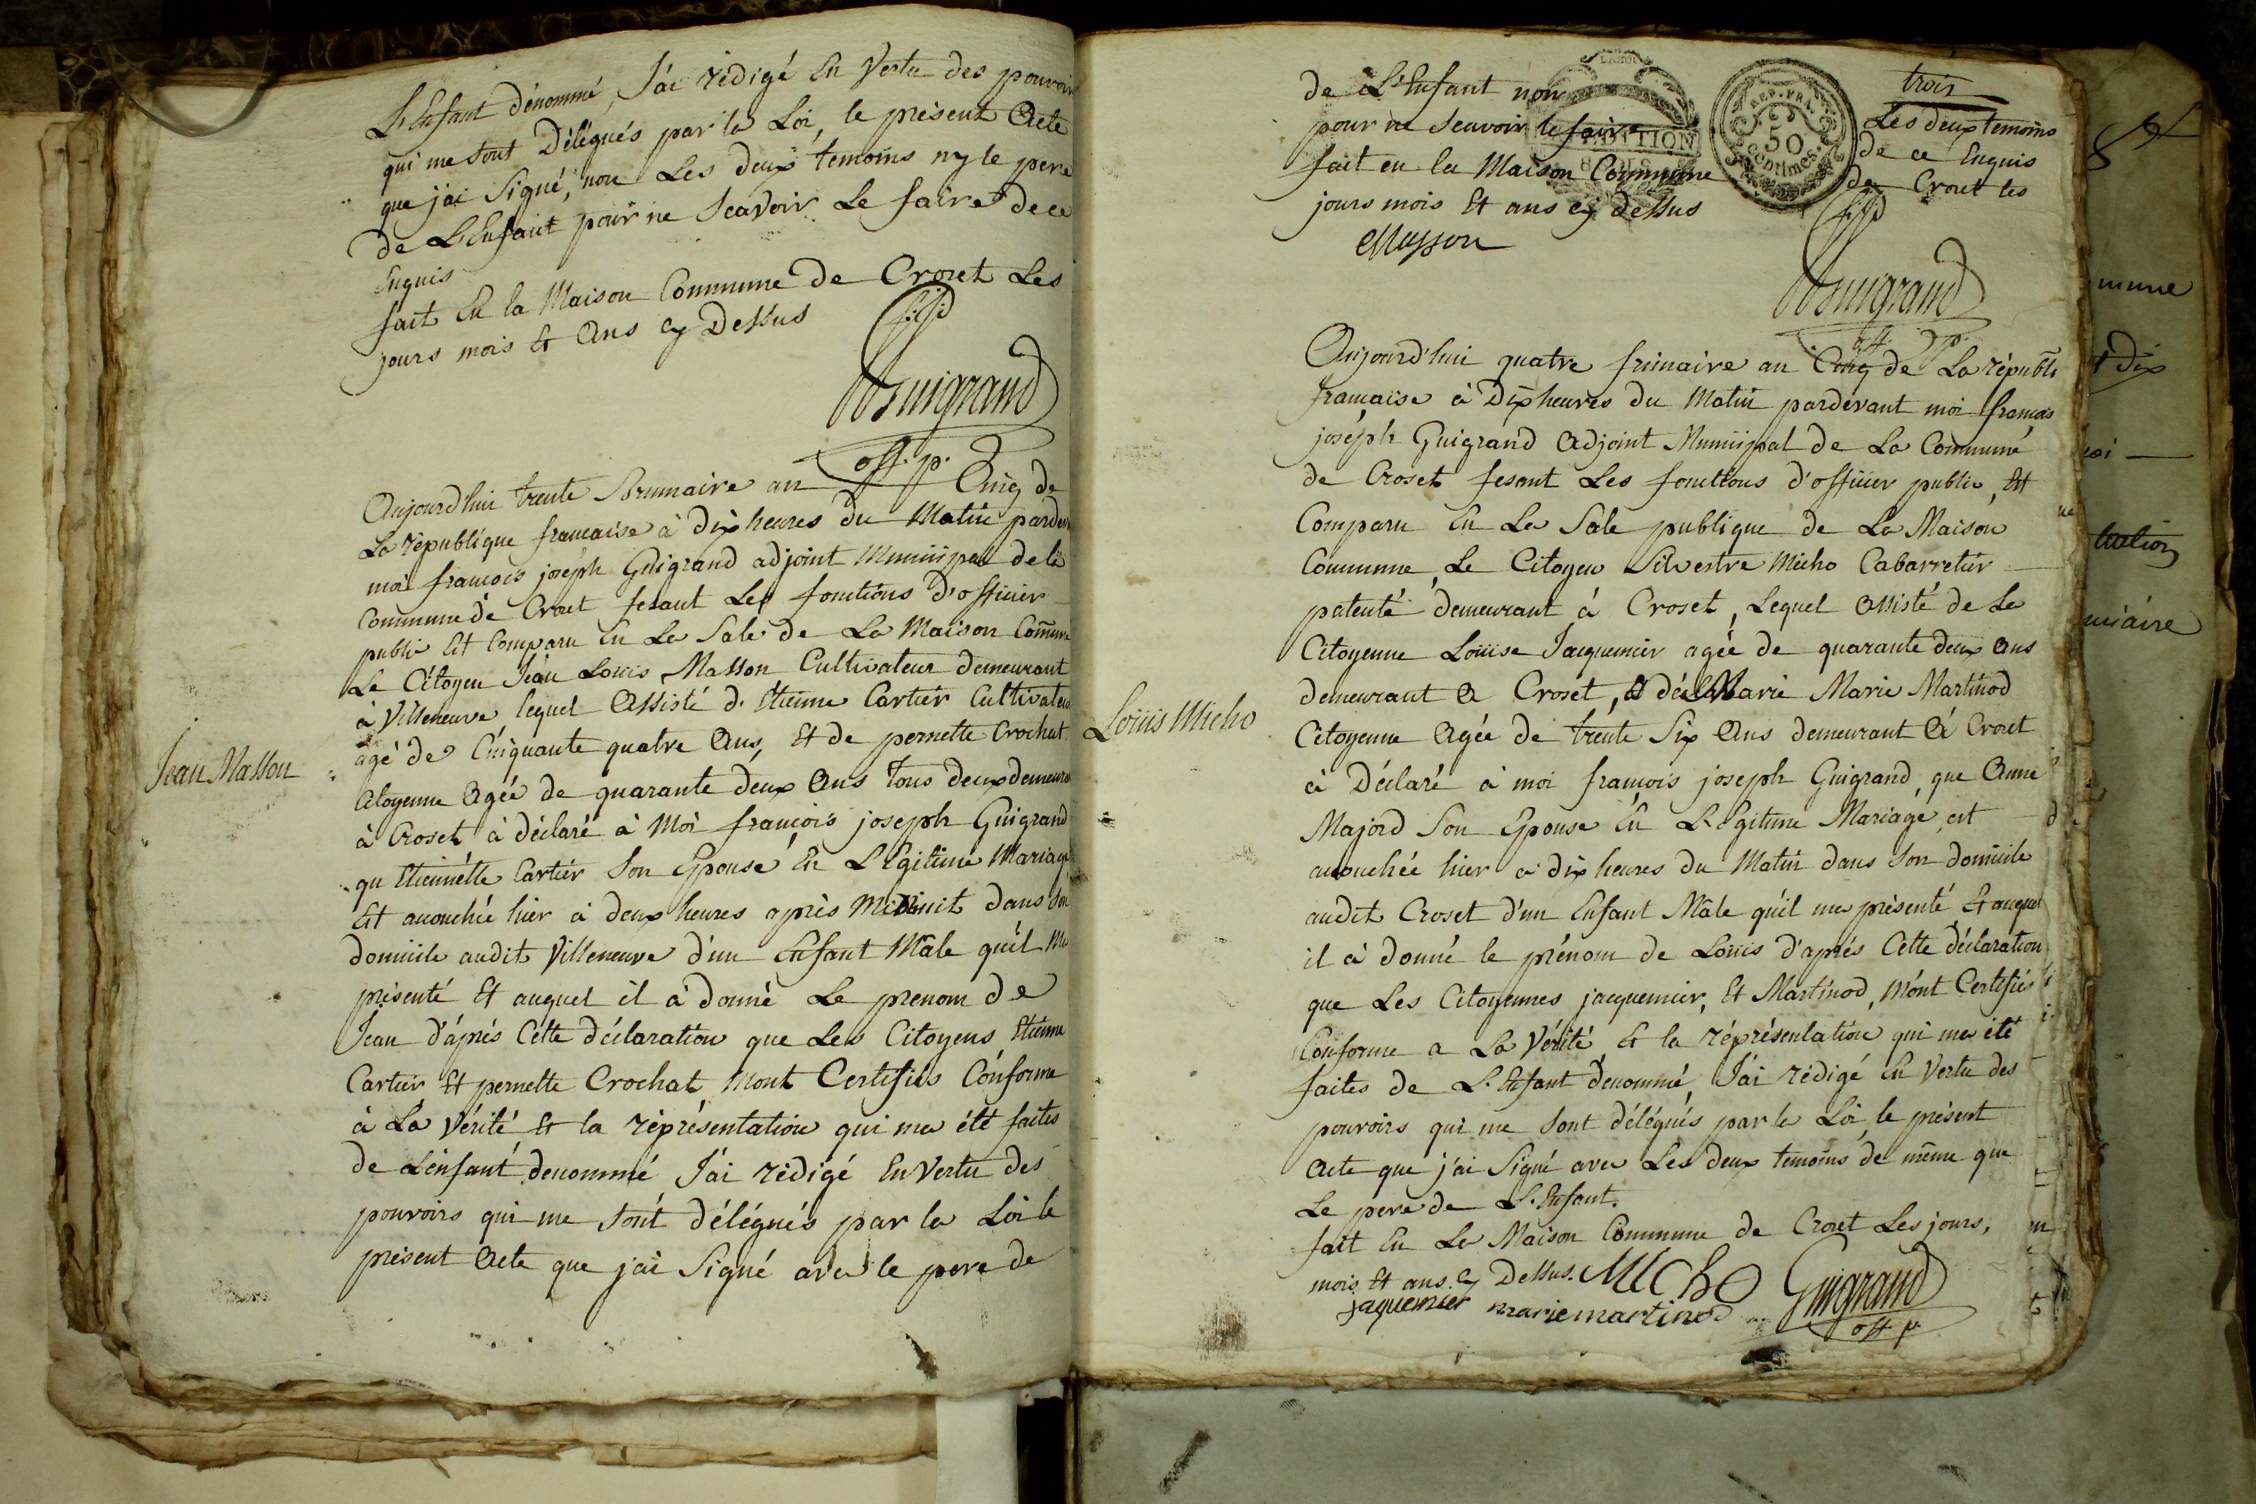 L'Enfant dénommé, J'ai rédigé En Vertu des pouvoirs
qui me sont Délégués par la Loi, le présent Acte
que j'ai Signé, non Les deux temoins ny le pere
de L'Enfant pour ne Scavoir Le faire de ce
Enquis
fait En la Maison Commune de Crozet Les
jours mois Et Ans cy Dessus
Guigrand
off. p.
Jean Masson
Aujourd'hui trente Brumaire an Cinq de
La république francaise à dix heures du Matin pardev
moi francois joseph Guigrand adjoint Municipal de la
Commune de Crozet fesant Les fonctions d'officier
public Et Comparu En La Sale de La Maison Commune
Le Citoyen Jean Louis Masson Cultivateur demeurant
à Villeneuve lequel Assisté d'Etienne Cartier Cultivateur
agé de Cinquante quatre Ans, Et de pernette Crochat
Citoyenne Agée de quarante deux Ans tous deux demeura
à Croset à déclaré à Moi francois joseph Guigrand
qu Etiennette Cartier Son Epouse En L'Egitime Mariage
Et acouchée hier à deux heures après Midinuit dans son
domicile audit Villeneuve d'un Enfant Mâle qu'il ma
présenté Et auquel il à donné Le prenom de
Jean d'après Cette déclaration que Les Citoyens Etienne
Cartier Et pernette Crochat mont Certifiés Conforme
à La Vérité Et la représentation qui ma été faites
de L'enfant denommé J'ai rédigé En Vertu des
pouvoirs qui me sont délégués par la Loi le
présent Acte que j'ai Signé avec le pere de
de L'Enfant non
pour ne Scavoir le faire
fait en la Maison Commune
jours mois Et ans cy dessus
trois
Les deux temoins
de ce Enquis
de Crozet les
REP. FRA.
50
centimes.
Masson
Guigrand
off. p.
Louis Micho
Aujourd'hui quatre frimaire an Cinq de La républi
francaise à Dix heures du Matin pardevant moi francois
joseph Guigrand Adjoint Municipal de La Commune
de Croset fesant Les fonctions d'officier public, Et
Comparu En La Sale publique de La Maison
Commune, Le Citoyen Silvestre Micho Cabarretier
patenté demeurant à Croset, Lequel Assisté de La
Citoyenne Louise Jacquemier agée de quarante deux Ans
demeurant a Croset, Et de Marie Martinod
Citoyenne Agée de trente Six Ans demeurant à Crozet
à Déclaré à moi francois joseph Guigrand, que Anne
Majord Son Epouse En L'Egitime Mariage, est
acouchée hier a dix heures du Matin dans Son domicile
audit Croset d'un Enfant Mâle qu'il ma présenté Et auquel
il à donné le prénom de Louis d'après Cette déclaration
que Les Citoyennes jacquemier, Et Martinod, m'ont Certifiés
Conforme a La Vérité Et la représentation qui ma été
faites de L'Enfant denommé, J'ai rédigé En Vertu des
pouvoirs qui me sont délégués par la Loi le présent
Acte que j'ai Signé avec Les deux temoins de même que
Le pere de L'Enfant.
fait En La Maison Commune de Crozet Les jours,
mois Et ans cy Dessus. MICho Guigrand
jaquemier marie martinod off p
mune
dix
moi